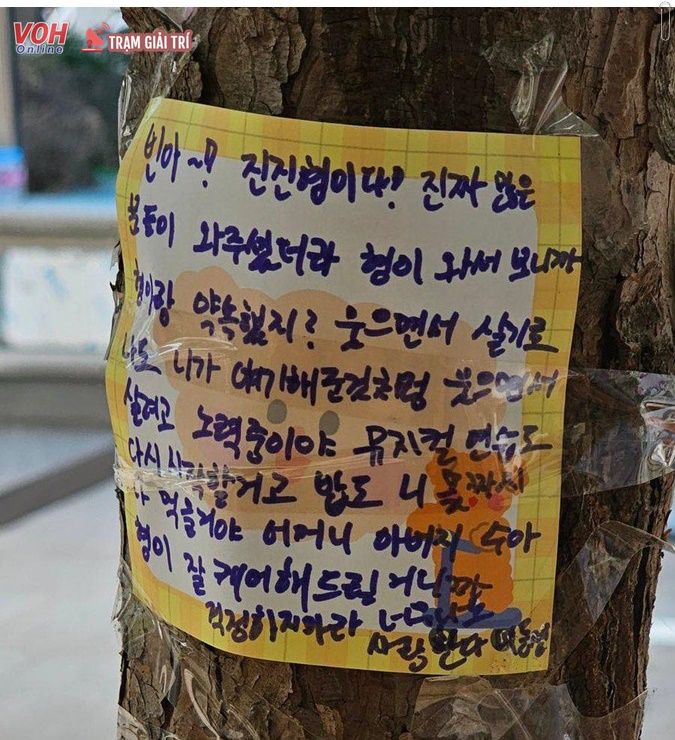 VOH
Online
TRẠM GIẢI TRÍ
빈아~! 진진형이다! 진짜 많은
분들이 와주셨더라 형이 와서 보니까
형이랑 약속했지? 웃으면서 살기로
나도 니가 얘기해준것처럼 웃으면서
살려고 노력중이야 뮤지컬 연습도
다시 시작할거고 밥도 니 몫까지
다 먹을거야 어머니 아버지 수아
형이 잘 케어해드릴거니까
걱정하지마라
사랑한다